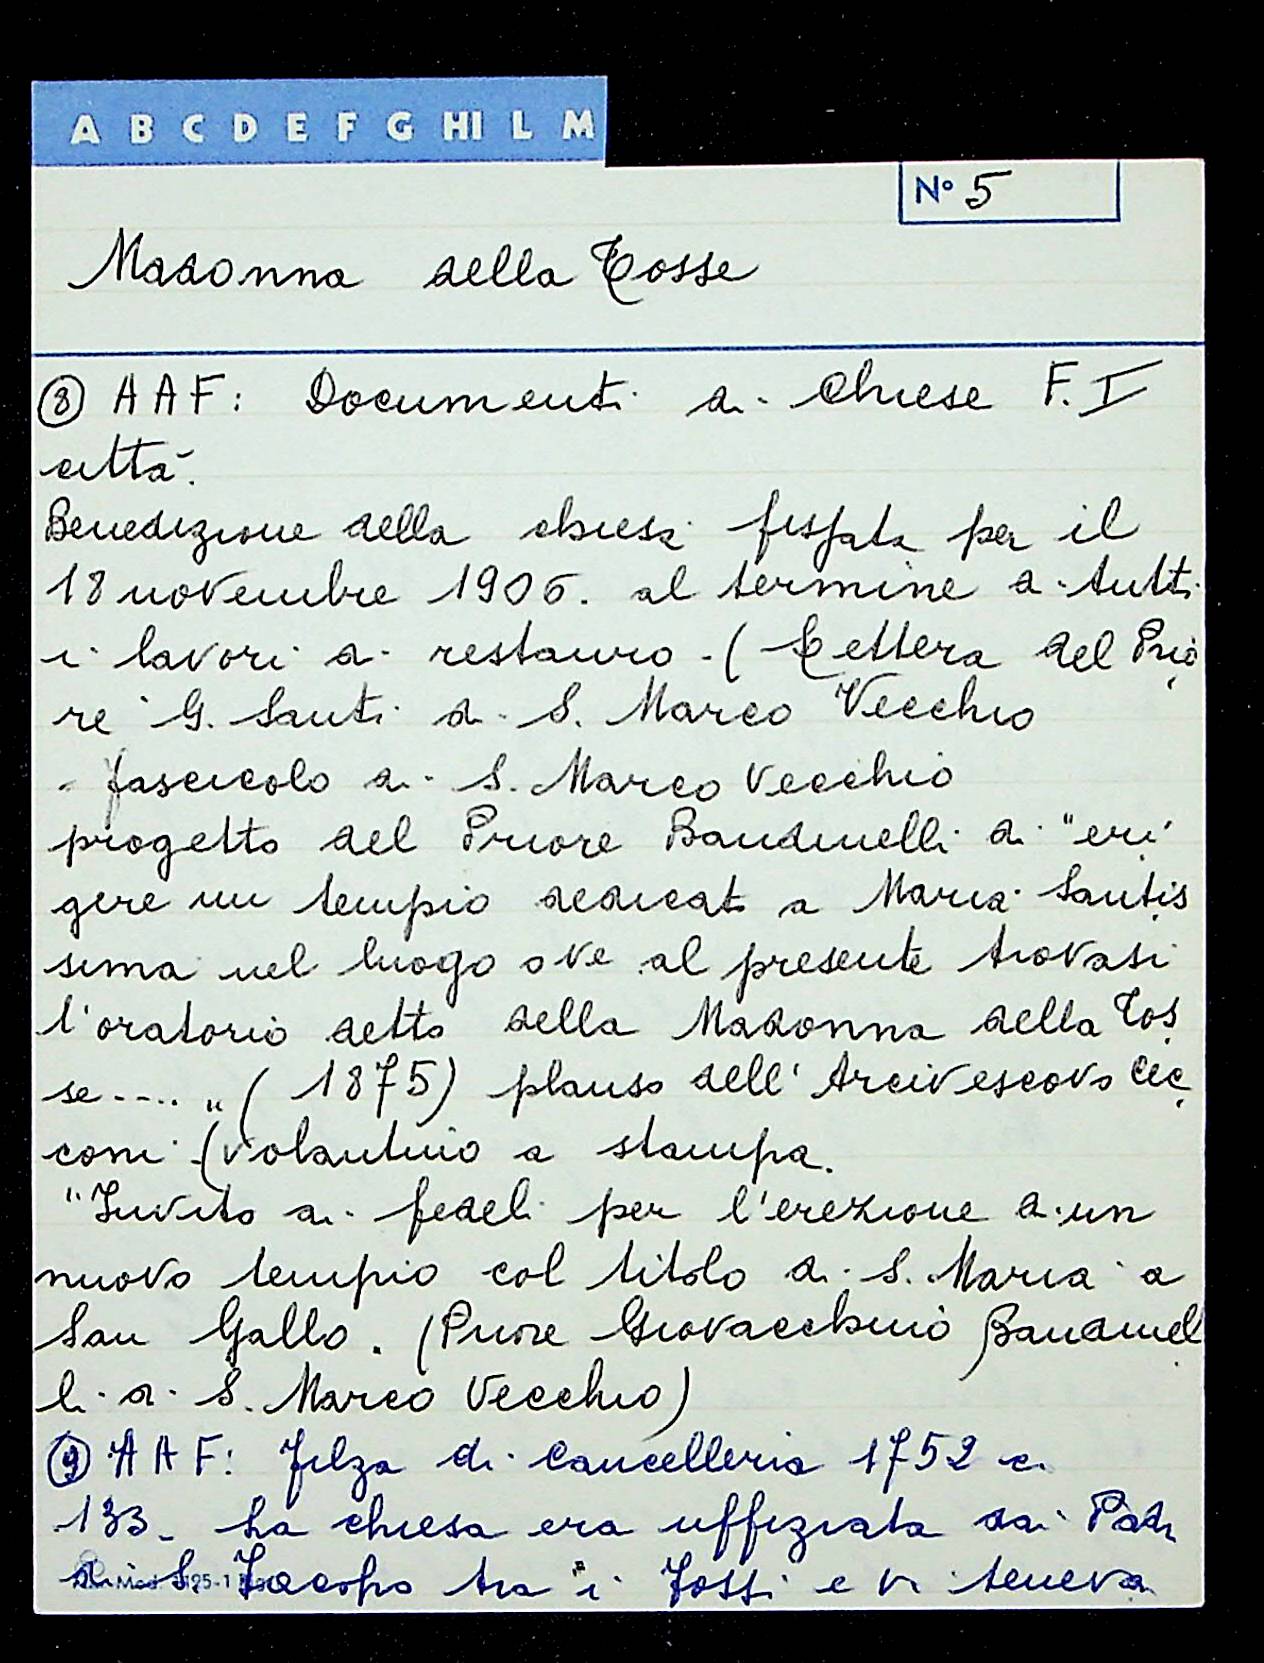 A B C D E F G HI L M
Nº 5
Madonna della Tosse
⑧ AAF: Documenti di Chiese F. I
città.
Benedizione della chiesa fissata per il
18 novembre 1906. al termine di tutti
i lavori di restauro - (Lettera del Prio
re G. Santi di S. Marco Vecchio
- fascicolo di S. Marco Vecchio
progetto del Priore Bandinelli di "eri
gere un tempio dedicato a Maria Santis
sima nel luogo ove al presente trovasi
l'oratorio detto della Madonna della Tos
se...." (1875) plauso dell'Arcivescovo Cec
coni (volantino a stampa.
"Invito ai fedeli per l'erezione di un
nuovo tempio col titolo di S. Maria a
San Gallo. (Priore Giovacchino Bandinel
li di S. Marco Vecchio)
⑨ AAF: Filza di Cancelleria 1752 c.
133 - La chiesa era uffiziata dai Padri
di S. Jacopo tra i Fossi e vi teneva